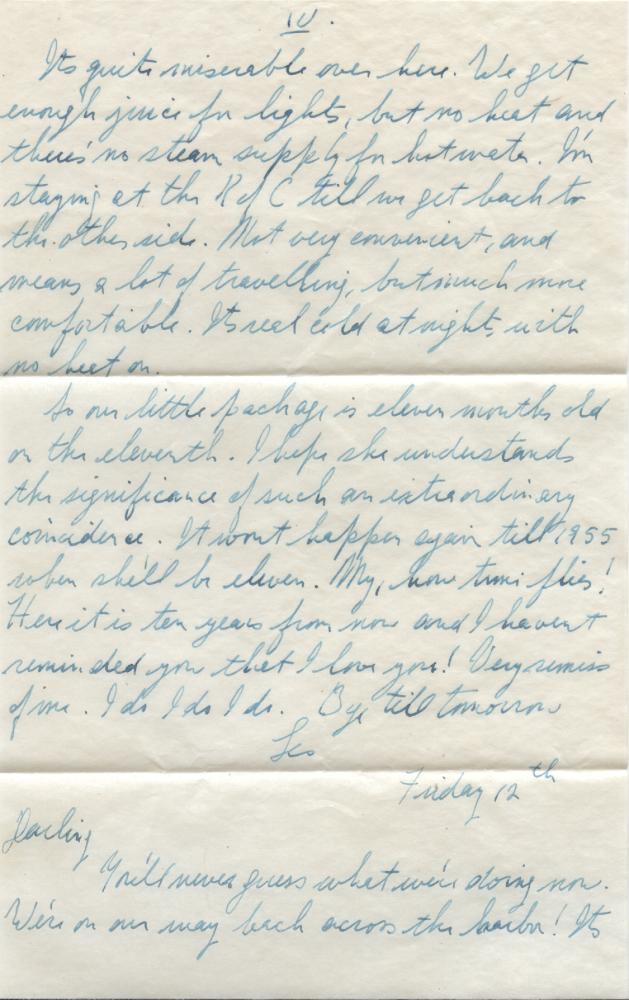 IV.
Its quite miserable over here. We get
enough juice for lights, but no heat and
there's no steam supply for hot water. I'm
staying at the K of C till we get back to
the other side. Not very convenient, and
means a lot of travelling, but much more
comfortable. Its real cold at nights with
no heet on.
So our little package is eleven months old
on the eleventh. I hope she understands
the significance of such an extraordinary
coincidence. It wont happen again till 1955
when she'll be eleven. My, how time flies!
Here it is ten years from now and I haven't
reminded you that I love you! Very remiss
of me. I do I do I do. Bye til tomorrow
Les
Friday 12th
Darling
You'll never guess what we're doing now.
We're on our way back across the harbor! Its